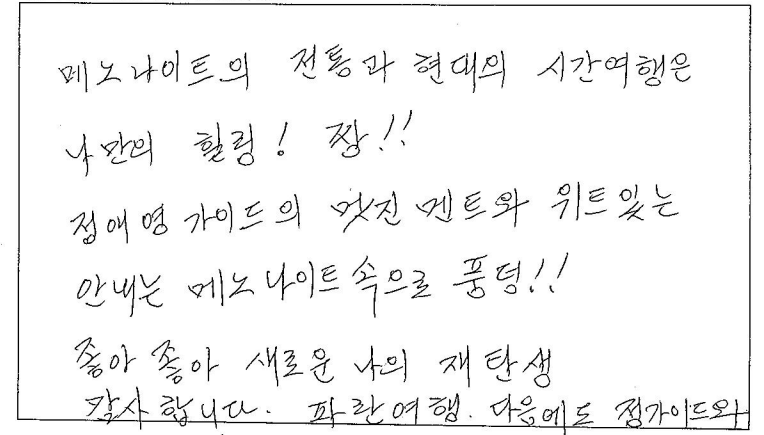 메노나이트의 전통과 현대의 시간여행은
나만의 힐링! 짱!!
정애영 가이드의 멋진 멘트와 위트있는
안내는 메노나이트 속으로 풍덩!!
좋아 좋아 새로운 나의 재탄생
감사합니다. 파란여행. 다음에도 정가이드와